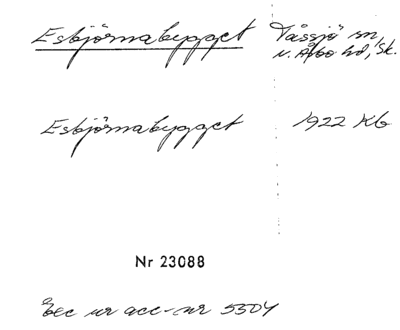 Esbjörnabygget Tåssjö sn,
N. Åsbo hd, Sk.
Esbjörnabygget 1922 Kb
Nr 23088
Exc ur acc-nr 5504